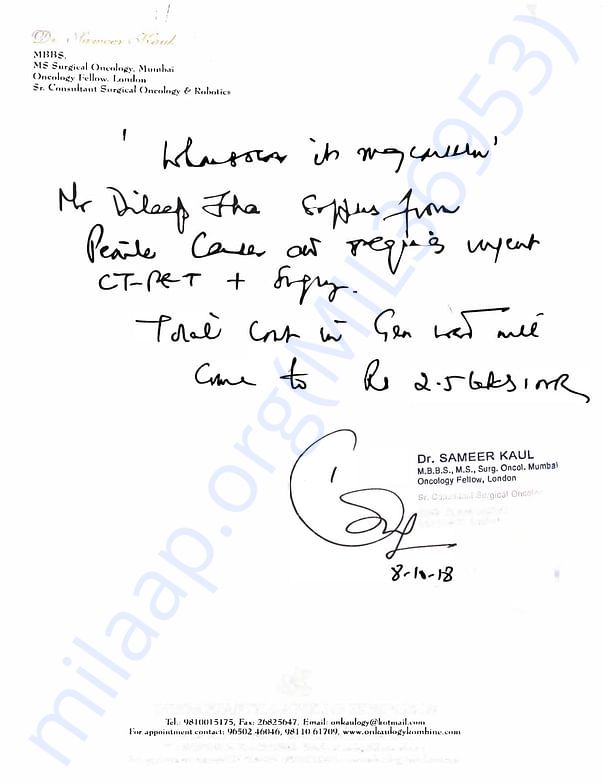 Dr. Sameer Kaul
MBBS,
MS Surgical Oncology, Mumbai
Oncology Fellow, London
Sr. Consultant Surgical Oncology & Robotics
' Whomsoever it may concern '
Mr Dileep Jha Suffers from
Penile Cancer and requires urgent
CT-PET + Surgery.
Total Cost in Gen ward will
Come to Rs 2.5 lakhs INR
Dr. SAMEER KAUL
M.B.B.S., M.S., Surg. Oncol. Mumbai
Oncology Fellow, London
Sr. Consultant Surgical Oncolo
8-10-18
Tel.: 9810015175, Fax: 26825647, Email: onkaulogy@hotmail.com
For appointment contact: 96502 46046, 98110 61709, www.onkaulogykombine.com
milaap.org(MIL36953)